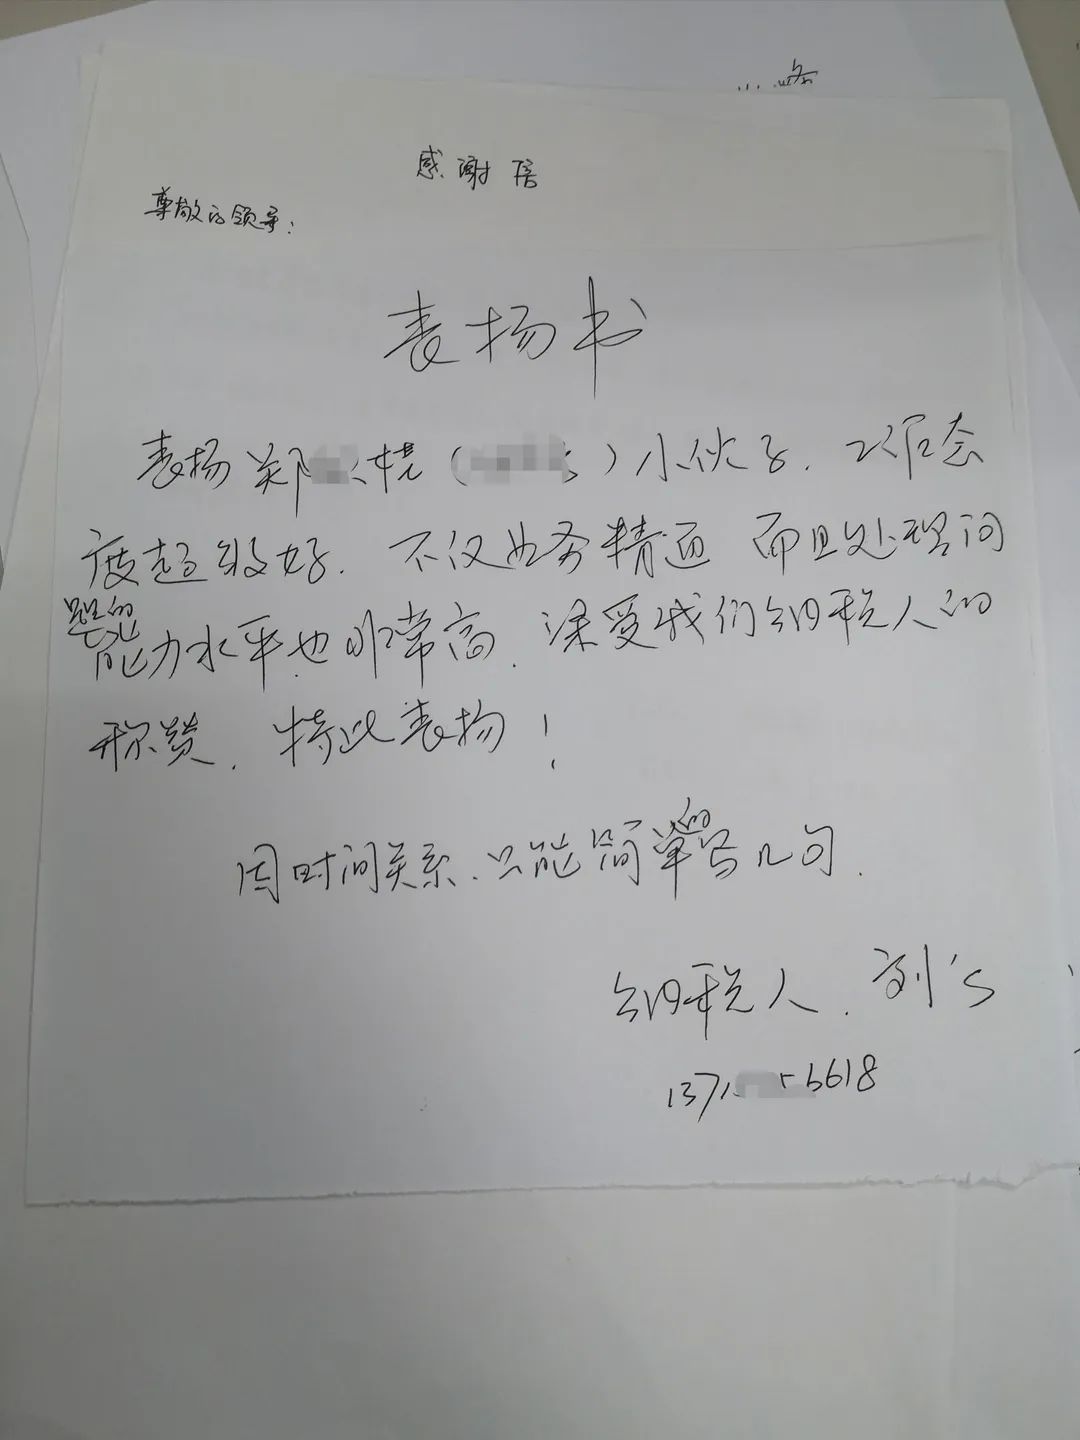 感谢信
尊敬的领导:
表扬书
表扬郑 (  )小伙子.工作态
度超级好.不仅业务精通 而且处理问
题的
能力水平也非常高.深受我们纳税人的
称赞.特此表扬!
因时间关系.只能简单的写几句.
纳税人.刘
137 6618